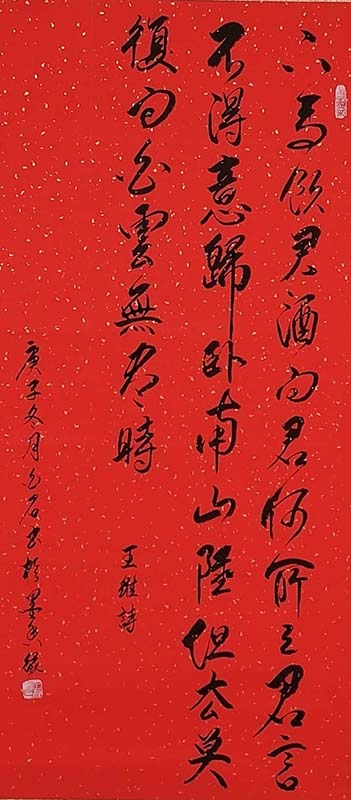 下馬飲君酒问君何所之君言
不得意歸卧南山陲但去莫
復问白雲無尽時
王維詩
庚子冬月白石书於墨香